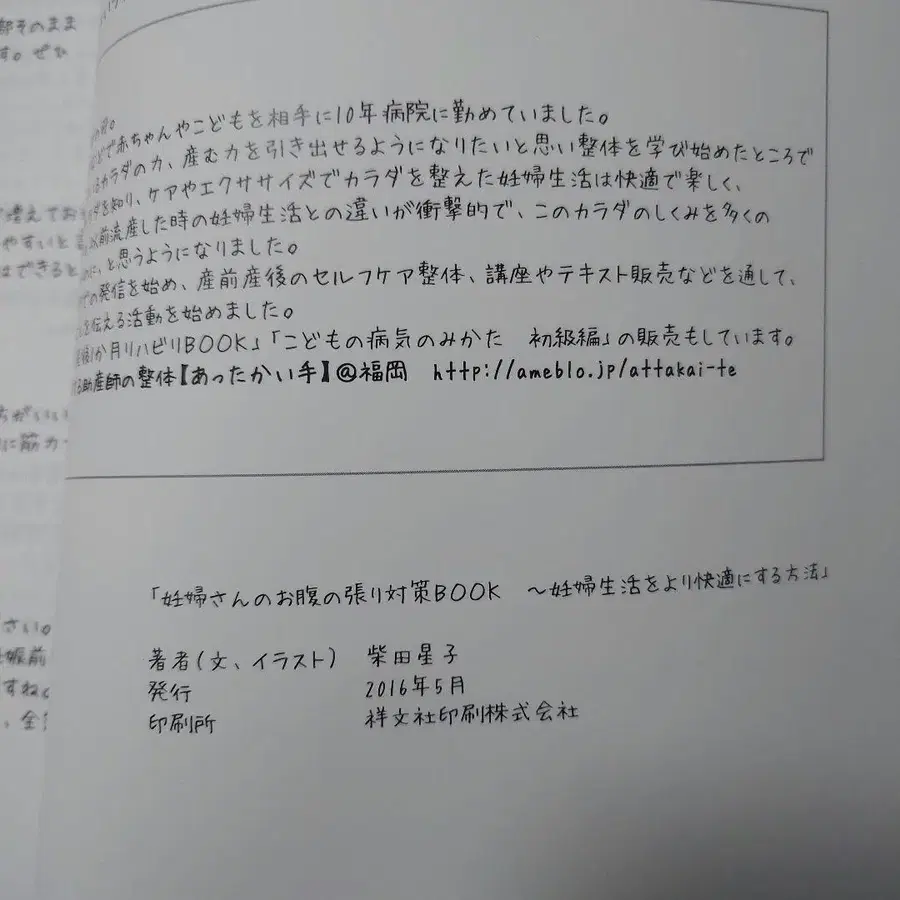 部そのまま
す。ぜひ
増えてお
やすいと
はできると
ちがいい
に筋力
さい。
妊娠前
すね
、全
で赤ちゃんやこどもを相手に10年病院に勤めていました。
カラダの力、産む力を引き出せるようになりたいと思い整体を学び始めたところで
を知り、ケアやエクササイズでカラダを整えた妊婦生活は快適で楽しく、
前流産した時の妊婦生活との違いが衝撃的で、このカラダのしくみを多くの
に、と思うようになりました。
の発信を始め、産前産後のセルフケア整体、講座やテキスト販売などを通して、
を伝える活動を始めました。
か月リハビリBOOK」「こどもの病気のみかた　初級編」の販売もしています。
助産師の整体【あったかい手】@福岡　http://ameblo.jp/attakai-te
「妊婦さんのお腹の張り対策BOOK　～妊婦生活をより快適にする方法」
著者(文、イラスト)　柴田星子
発行　2016年5月
印刷所　祥文社印刷株式会社